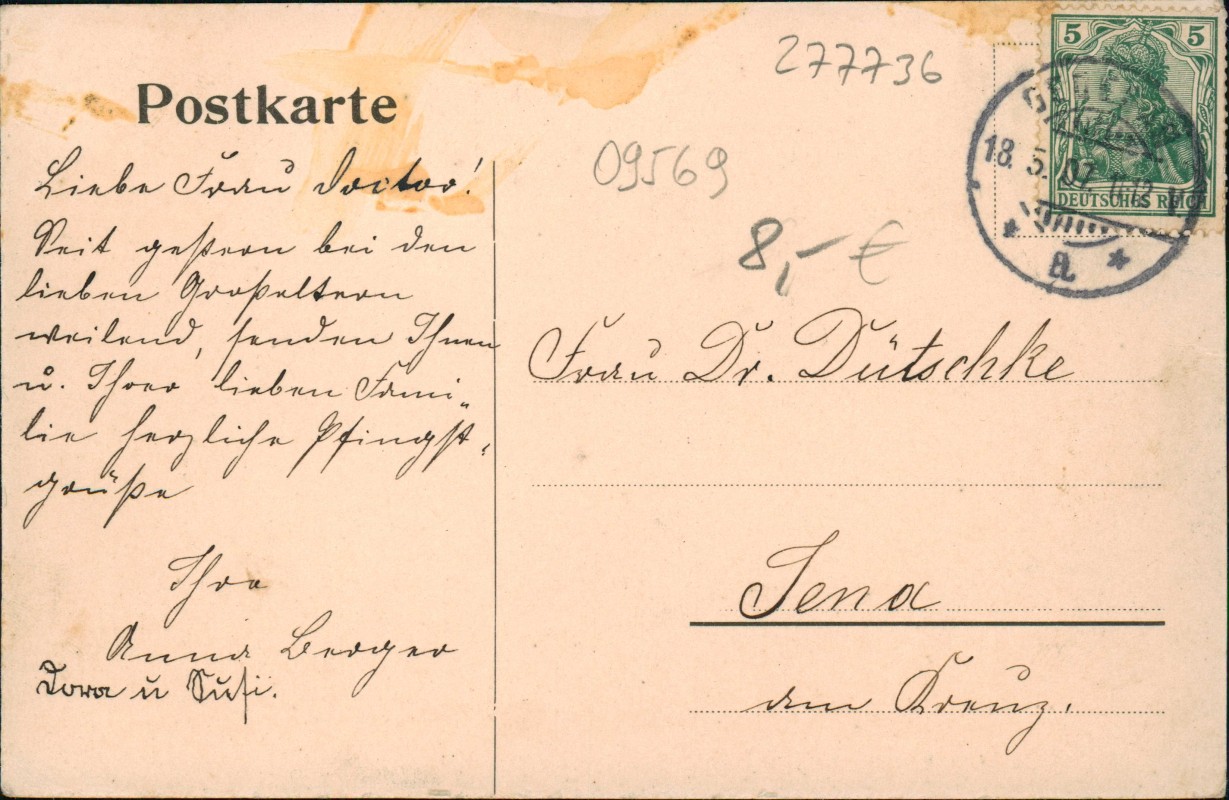 Postkarte
Liebe Frau Doctor!
Seit gestern bei den
lieben Großeltern
weilend, senden Ihnen
u. Ihrer lieben Fami„
lie herzliche Pfingst„
grüße
Ihre
Anna Berger
Dora u Susi.
277736
09569
8,- €
5 5
DEUTSCHES REICH
18. 5. 07. 11-12 V.
a.
Frau Dr. Dütschke
Jena
am Kreuz.